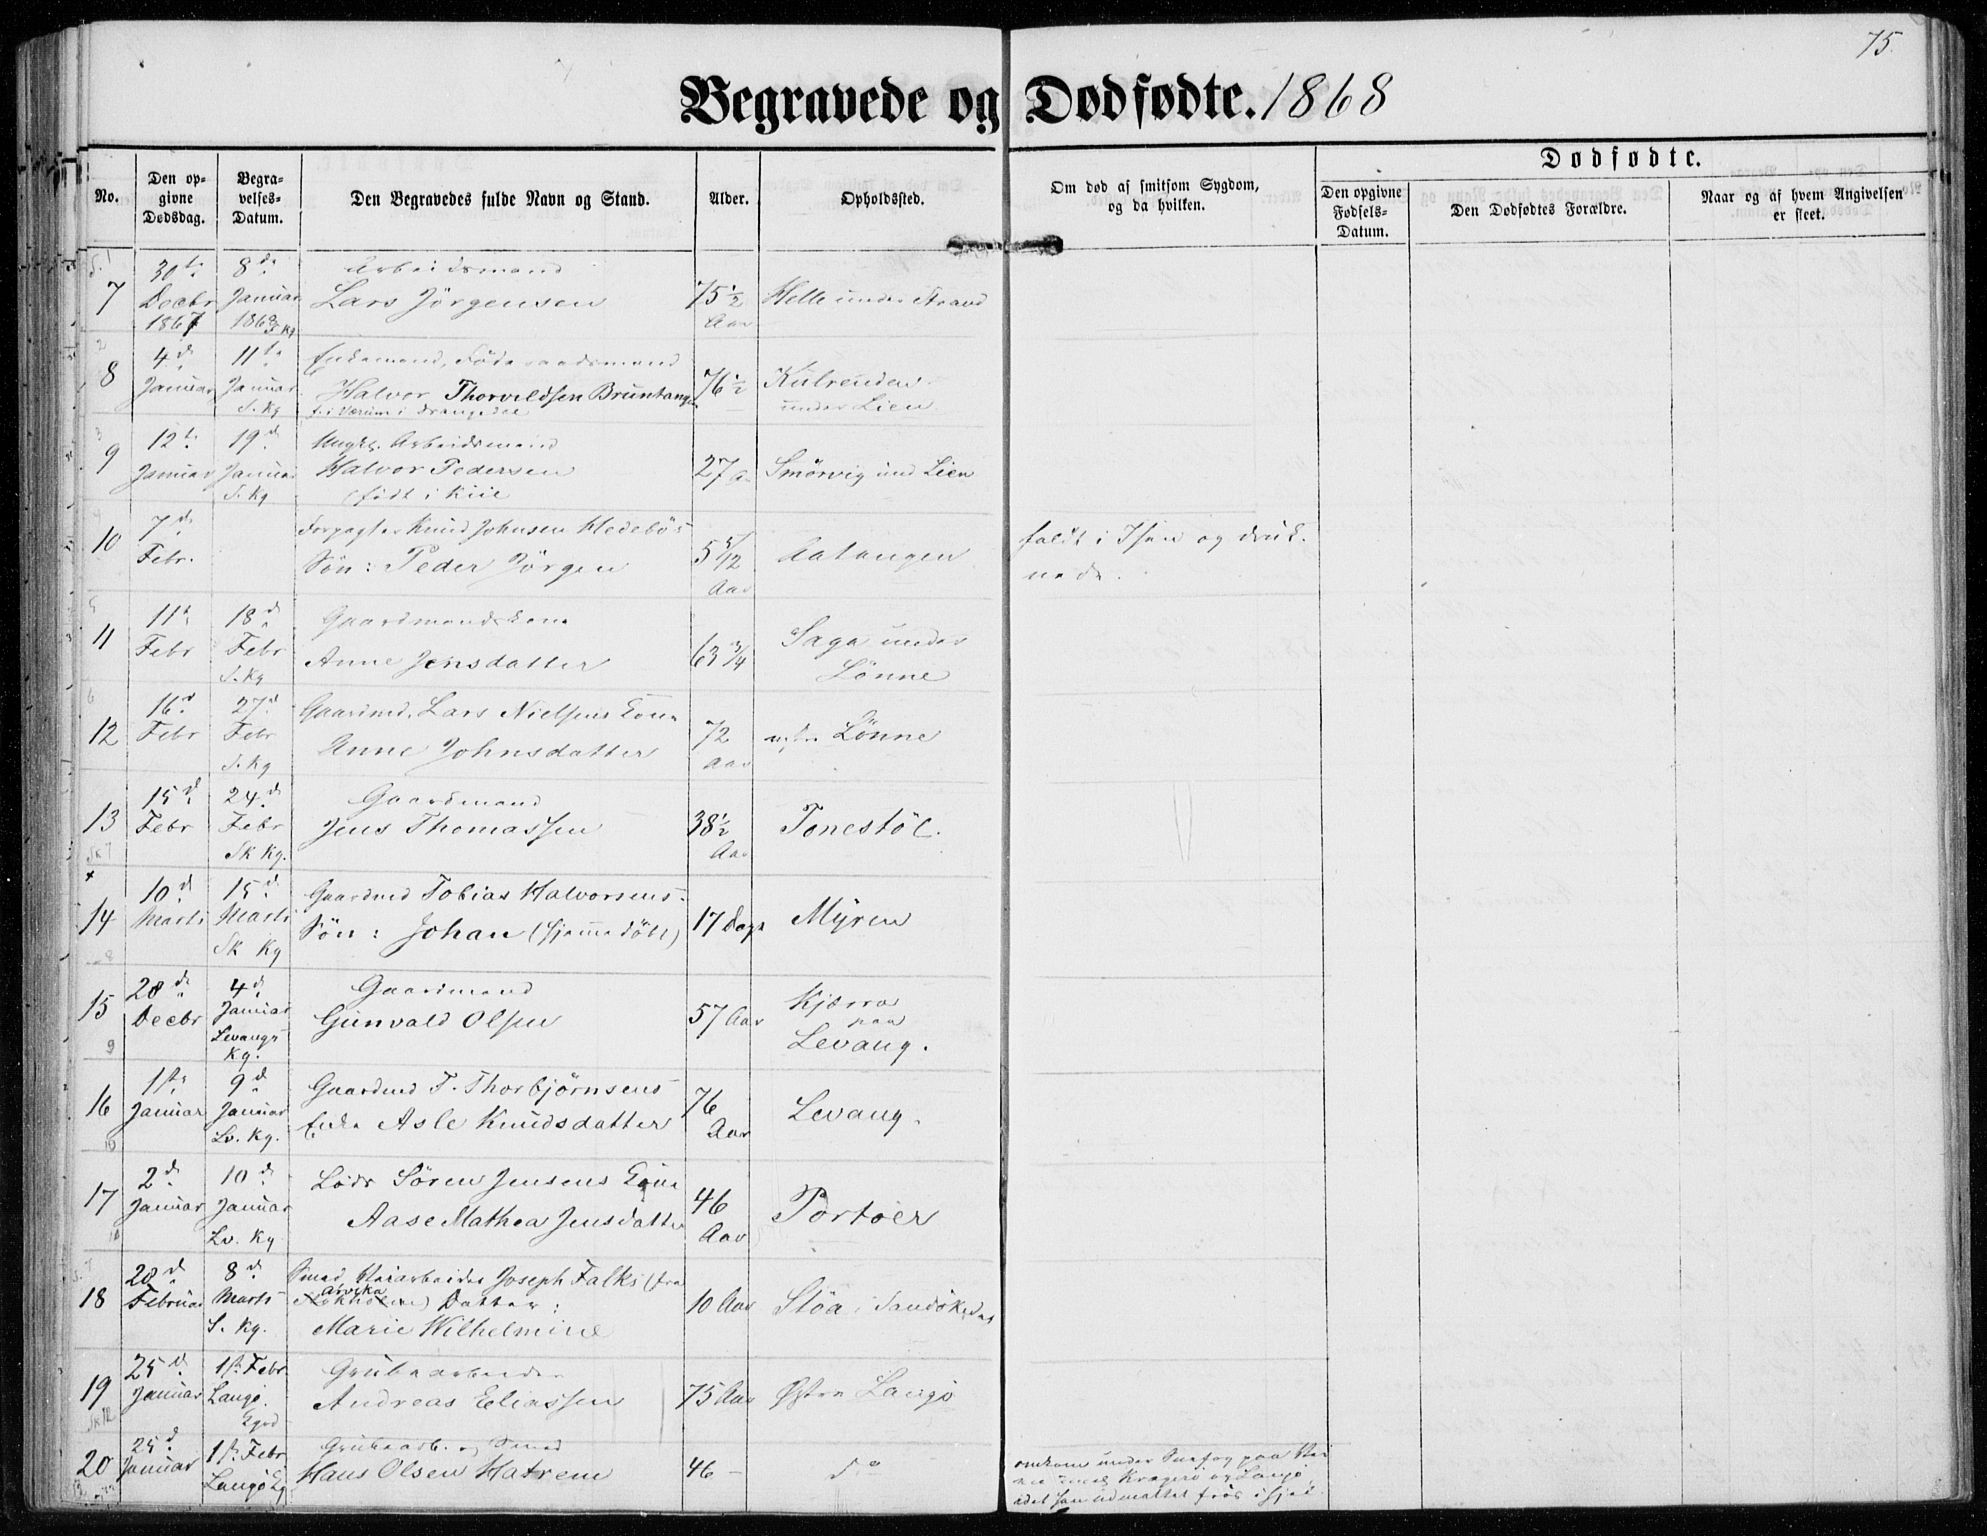 75.
Begravede og Dødfødte. 1868
No.
Den op-
givne
Dødsdag.
Begra-
velses-
Datum.
Den Begravedes fulde Navn og Stand.
Alder.
Opholdssted.
Om død af smitsom Sygdom,
og da hvilken.
Dødfødte.
Den opgivne
Fødsels-
Datum.
Den Dødfødtes Forældre.
Naar og af hvem Angivelsen
er skeet.
7 30te Decbr 1867 8de Januar 1868 S. Kg
Arbeidsmand
Lars Jörgensen
75 1/2 Aar Helle under Strand
8 4de Januar 11te Januar S. Kg
Enkemand, Föderaadsmand
Halvor Thorvildsen Bruntangen
i Drangedal
76 1/2 Kulrenden
under Lien
9 12te Januar 19de Januar S. Kg
Ungk. Arbeidsmand
Halvor Pedersen
(födt i Kiil
27 a. Smörvig und Lien
10 7de Febr.
Forpagter Knud Johnsen Hedebös
Sön: Peder Jörgen
5 5/12 Aar Aatangen
faldt i Isen og druk-
nede.
11 11te Febr 18de Febr S. Kg
Gaardmandskone
Anne Jensdatter
63 3/4 Saga under
Lönne
12 16de Febr 27de Febr S. Kg
Gaardmd. Lars Nielsens Kone
Anne Johnsdatter
72 Aar Lönne
13 15de Febr 24de Febr Sk Kg.
Gaardmand
Jens Thomassen
38 1/2 Aar Tonestöl.
14 10de Marts 15de Marts Sk Kg
Gaardmd Tobias Halvorsens
Sön: Johan (hjemmedöbt)
17 Dage Myren
15 28de Decbr 4de Januar Levangs Kg.
Gaardmand
Gunvald Olsen
57 Aar Kjærra
paa
Levang.
16 1ste Januar 9de Januar Lv. Kg.
Gaardmd T. Thorbjørnsens
Enke Asle Knudsdatter
76 Aar Levang.
17 2de Januar 10de Januar Lv. Kg
Lods Sören Jensens Kone
Aase Mathea Jensdatter
46 Aar Portöer
18 28de Februar 8de Marts S. Kg.
Joseph Falks (fra
Arvika) Datter:
Marie Wilhelmine
10 Aar Stöa i Sandökedal
19 25de Januar 1ste Febr Langö.
Grubearbeider
Andreas Eliassen
75 Aar Østre Langö
20 25de Januar 1ste Febr. Langö Kg
Grubearb. og Smed
Hans Olsen Hatrem
46 – do
omkom under Snefog paa
Kragerö og Langö,